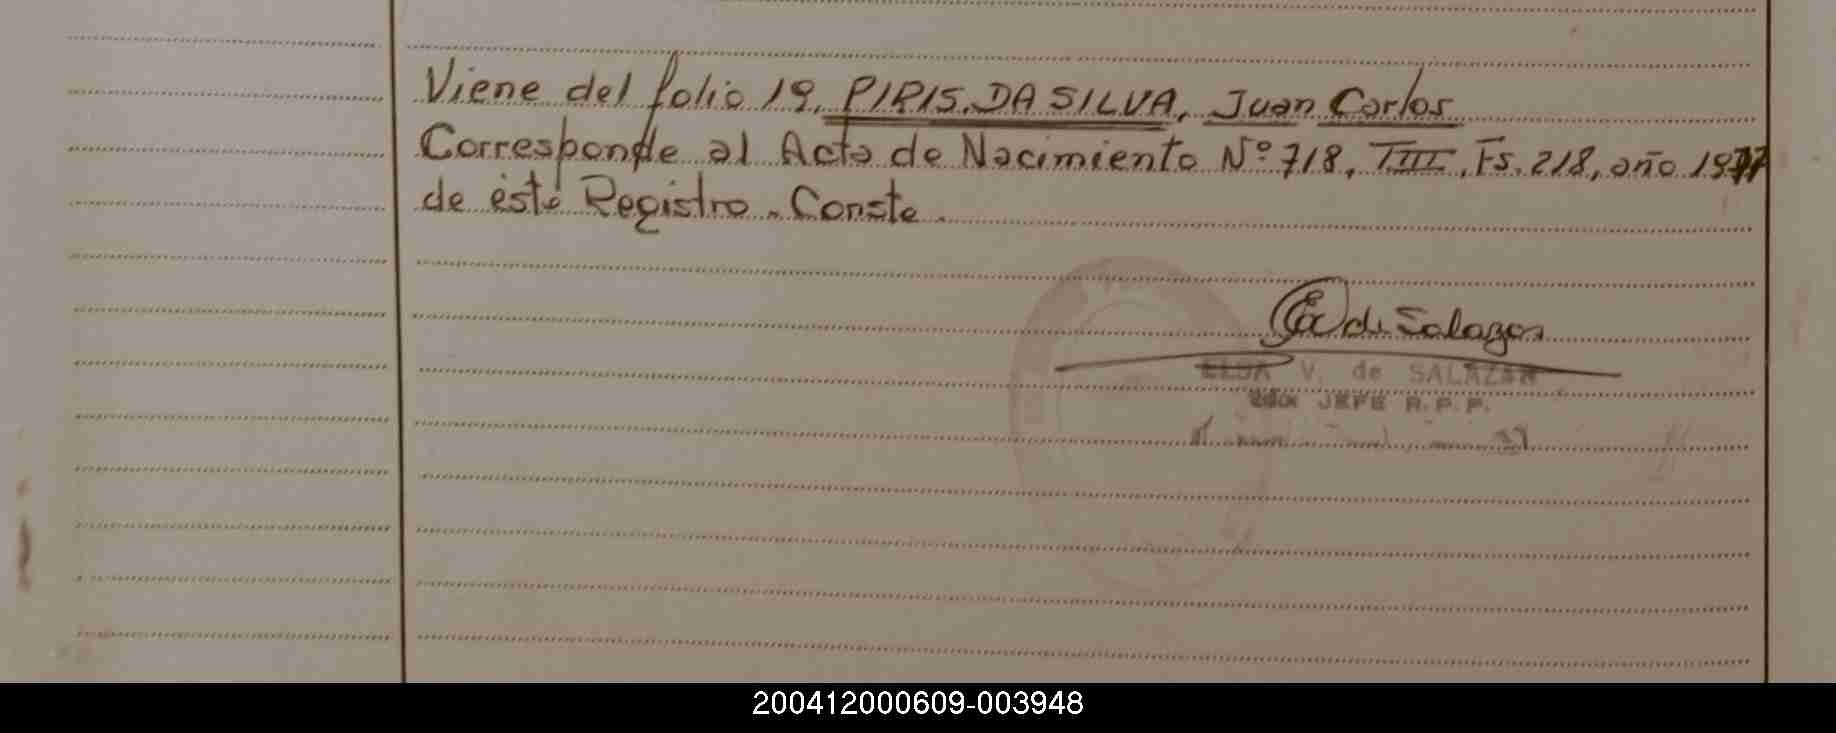 Viene del folio 19, PIRIS DA SILVA, Juan Carlos
Corresponde al Acta de Nacimiento Nº 718, TIII, Fs. 218, año 1977
de éste Registro. Conste.
de Salazar
ELDA V. de SALAZAR
JEFE R.P.P.
200412000609-003948